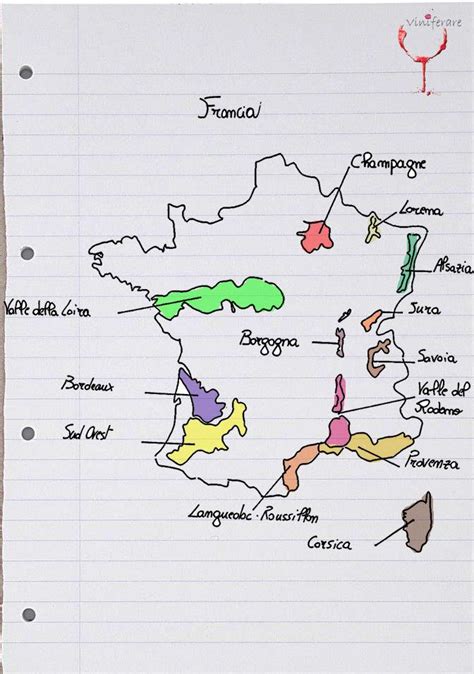 viniferare
Francia
Champagne
Lorena
Alsazia
Valle della Loira
Jura
Borgogna
Savoia
Bordeaux
Valle del
Rodano
Sud Ovest
Provenza
Languedoc-Roussillon
Corsica